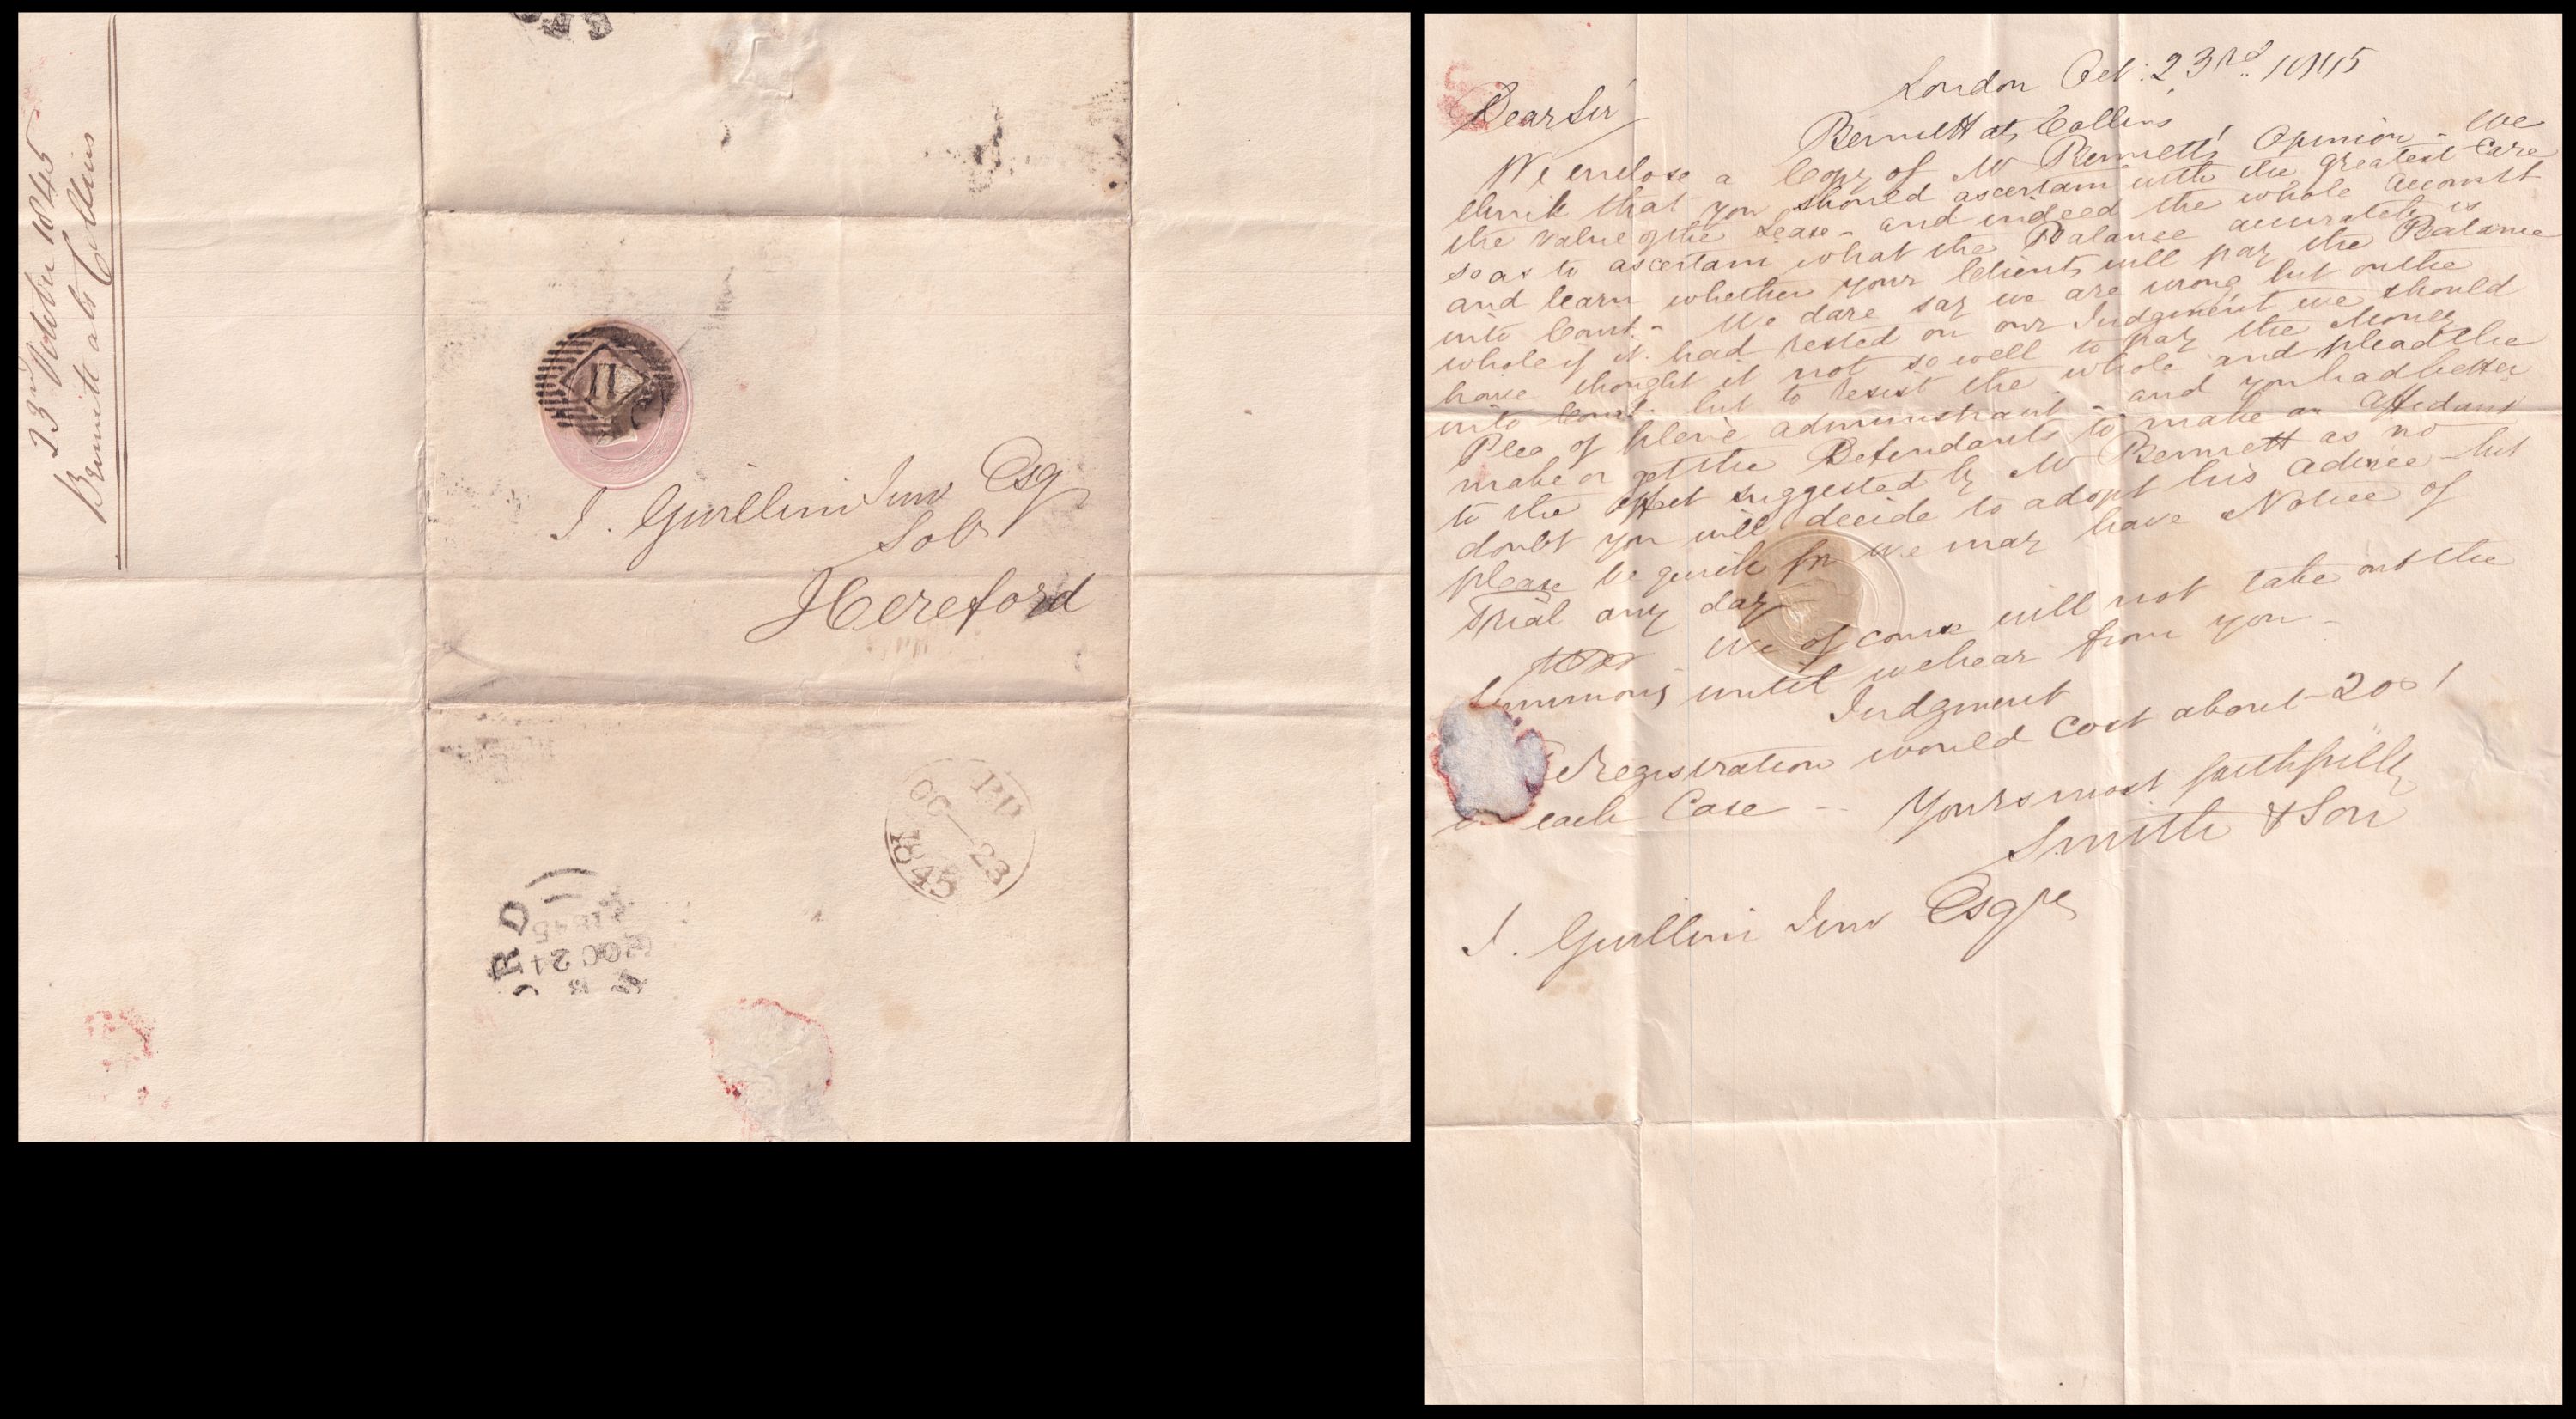 23rd October 1845
Bennett ats Collins
11
J. Gwillim Junr Esq
Solr
Hereford
PD
OC 23
1845
RD
OC 24
1845
London Oct: 23rd 1845
Dear Sir
Bennett ats Collins
We enclose a Copy of Mr Bennett's Opinion - We
think that you should ascertain with the greatest Care
the value of the Lease - and indeed the whole Account
so as to ascertain what the Balance accurately is
and learn whether your Clients will pay the Balance
into Court - We dare say we are wrong but on the
whole if it had rested on our Judgment we should
have thought it not so well to pay the Money
into Court but to resist the whole and plead the
Plea of plene administravit - and you had better
make or get the Defendants to make an Affidavit
to the effect suggested by Mr Bennett as no
doubt you will decide to adopt his advice - but
please be quick for we may have Notice of
Trial any day
We of course will not take out the
Summons until we hear from you -
Judgment
Registration would cost about 20s/
in each Case - Yours most faithfully
Smith & Son
J. Gwillim Junr Esqre